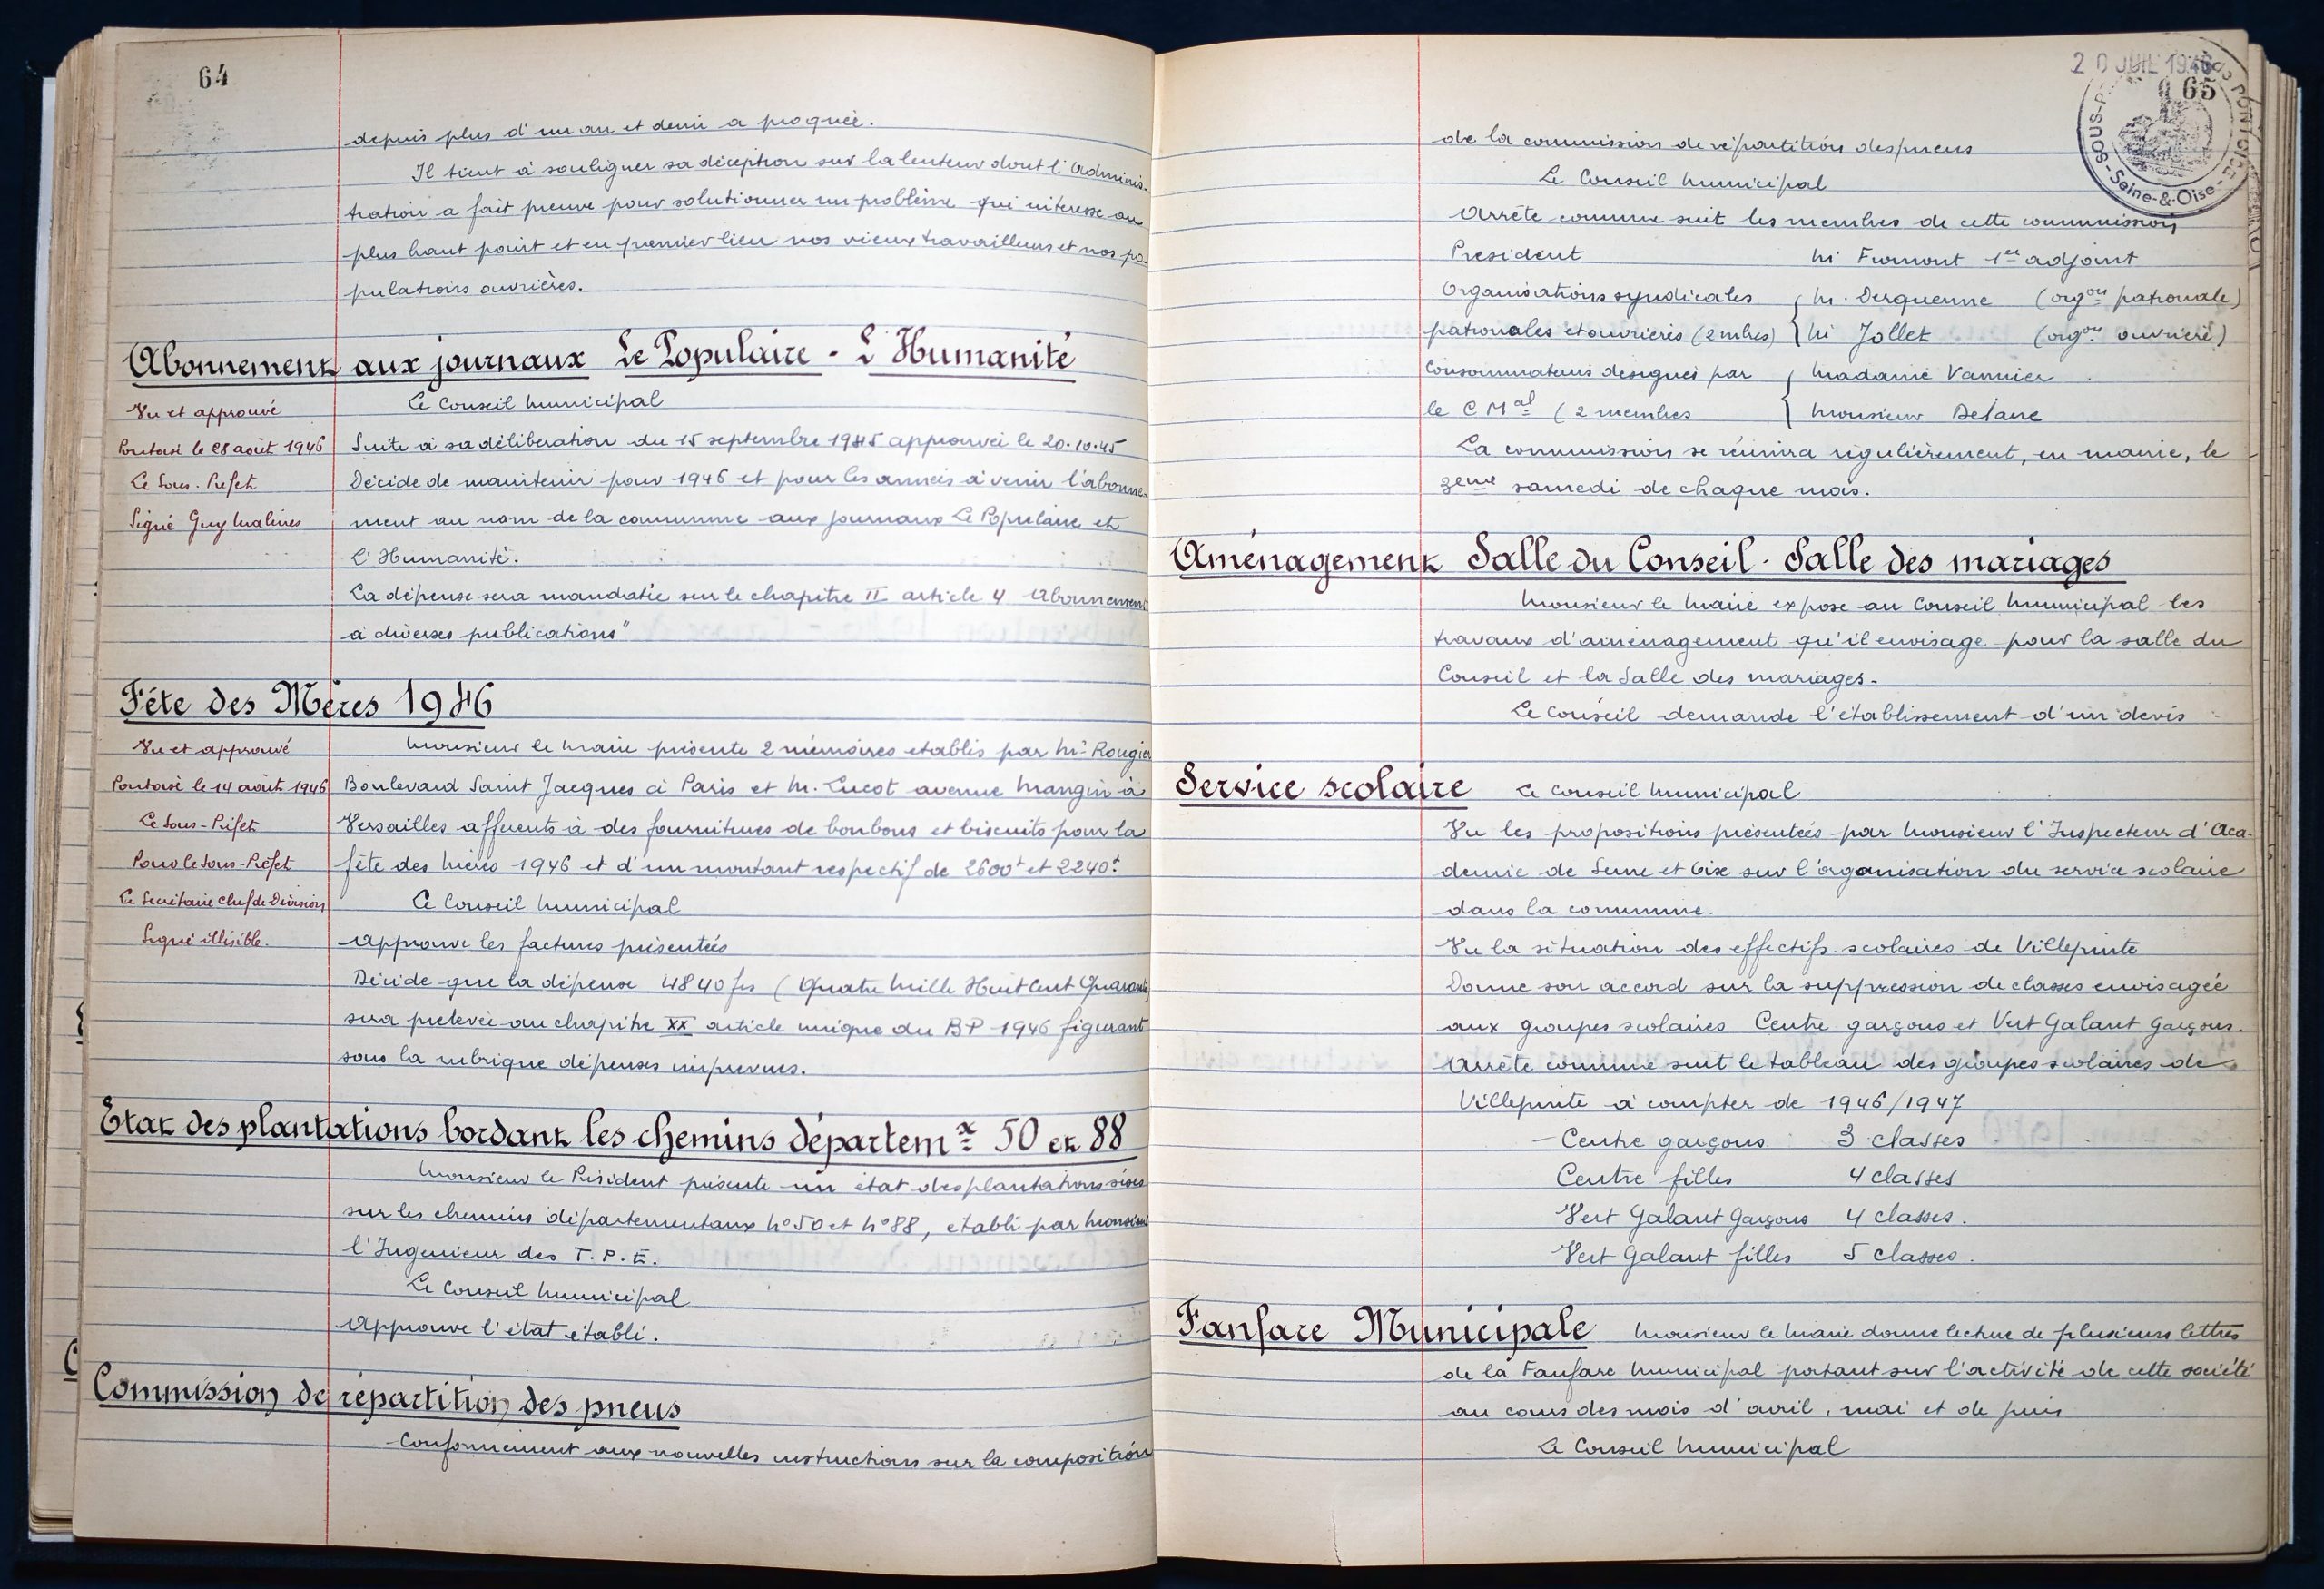 64
depuis plus d'un an et demi a proquée.
Il tient à souligner sa déception sur la lenteur dont l'Adminis-
tration a fait preuve pour solutionner un problème qui intéresse au
plus haut point et en premier lieu nos vieux travailleurs et nos po-
pulations ouvrières.
Abonnement aux journaux Le Populaire - L'Humanité
Vu et approuvé
Pontoise le 28 août 1946
Le Sous-Préfet
Signé Guy Malines
Le Conseil Municipal
Suite à sa délibération du 15 septembre 1945 approuvée le 20.10.45
Décide de maintenir pour 1946 et pour les années à venir l'abonne-
ment au nom de la commune aux journaux Le Populaire et
L'Humanité.
La dépense sera mandatée sur le chapitre II article 4 Abonnement
à diverses publications"
Fête des Mères 1946
Vu et approuvé
Pontoise le 14 août 1946
Le Sous-Préfet
Pour le Sous-Préfet
Le Secrétaire Chef de Division
Signé illisible.
Monsieur le Maire présente 2 mémoires etablis par Mr Rougier
Boulevard Saint Jacques à Paris et M. Lucot avenue Mangin à
Versailles afférents à des fournitures de bonbons et biscuits pour la
fête des Mères 1946 et d'un montant respectif de 2600f et 2240f.
Le Conseil Municipal
Approuve les factures présentées
Décide que la dépense 4840 frs (Quatre Mille Huit Cent Quarante)
sera prelevée au chapitre XX article unique du BP 1946 figurant
sous la rubrique dépenses imprévues.
Etat des plantations bordant les chemins départemx 50 et 88
Monsieur le Président présente un état des plantations sises
sur les chemins départementaux N° 50 et N° 88, établi par Monsieur
l'Ingenieur des T.P.E.
Le Conseil Municipal
Approuve l'état établi.
Commission de répartition des pneus
Conformément aux nouvelles instructions sur la composition
20 JUIL 1946
65
SOUS-P
DE PONTOISE
Seine-&-Oise
de la commission de répartition des pneus
Le Conseil Municipal
Arrête comme suit les membres de cette commission
President Mr Fumont 1er adjoint
Organisations syndicales { M. Derquenne (orgon patronale)
patronales et ouvrières (2 mbres) { Mr Jollet (orgon ouvrière)
Consommateurs désignés par { Madame Vannier
le C Mal (2 membres { Monsieur Delaire
La commission se réunira régulièrement, en mairie, le
3eme samedi de chaque mois.
Aménagement Salle du Conseil - Salle des mariages
Monsieur le Maire expose au Conseil Municipal les
travaux d'aménagement qu'il envisage pour la salle du
Conseil et la Salle des mariages.
Le Conseil demande l'établissement d'un devis
Service scolaire Le Conseil Municipal
Vu les propositions présentées par Monsieur l'Inspecteur d'Aca-
demie de Seine et Oise sur l'organisation du service scolaire
dans la commune.
Vu la situation des effectifs scolaires de Villepinte
Donne son accord sur la suppression de classes envisagée
aux groupes scolaires Centre garçons et Vert Galant Garçons.
Arrête comme suit le tableau des groupes scolaires de
Villepinte à compter de 1946/1947
- Centre garçons 3 classes
Centre filles 4 classes
Vert Galant Garçons 4 classes.
Vert Galant filles 5 classes.
Fanfare Municipale Monsieur le Maire donne lecture de plusieurs lettres
de la Fanfare Municipal portant sur l'activité de cette société
au cours des mois d'avril, mai et de juin
Le Conseil Municipal